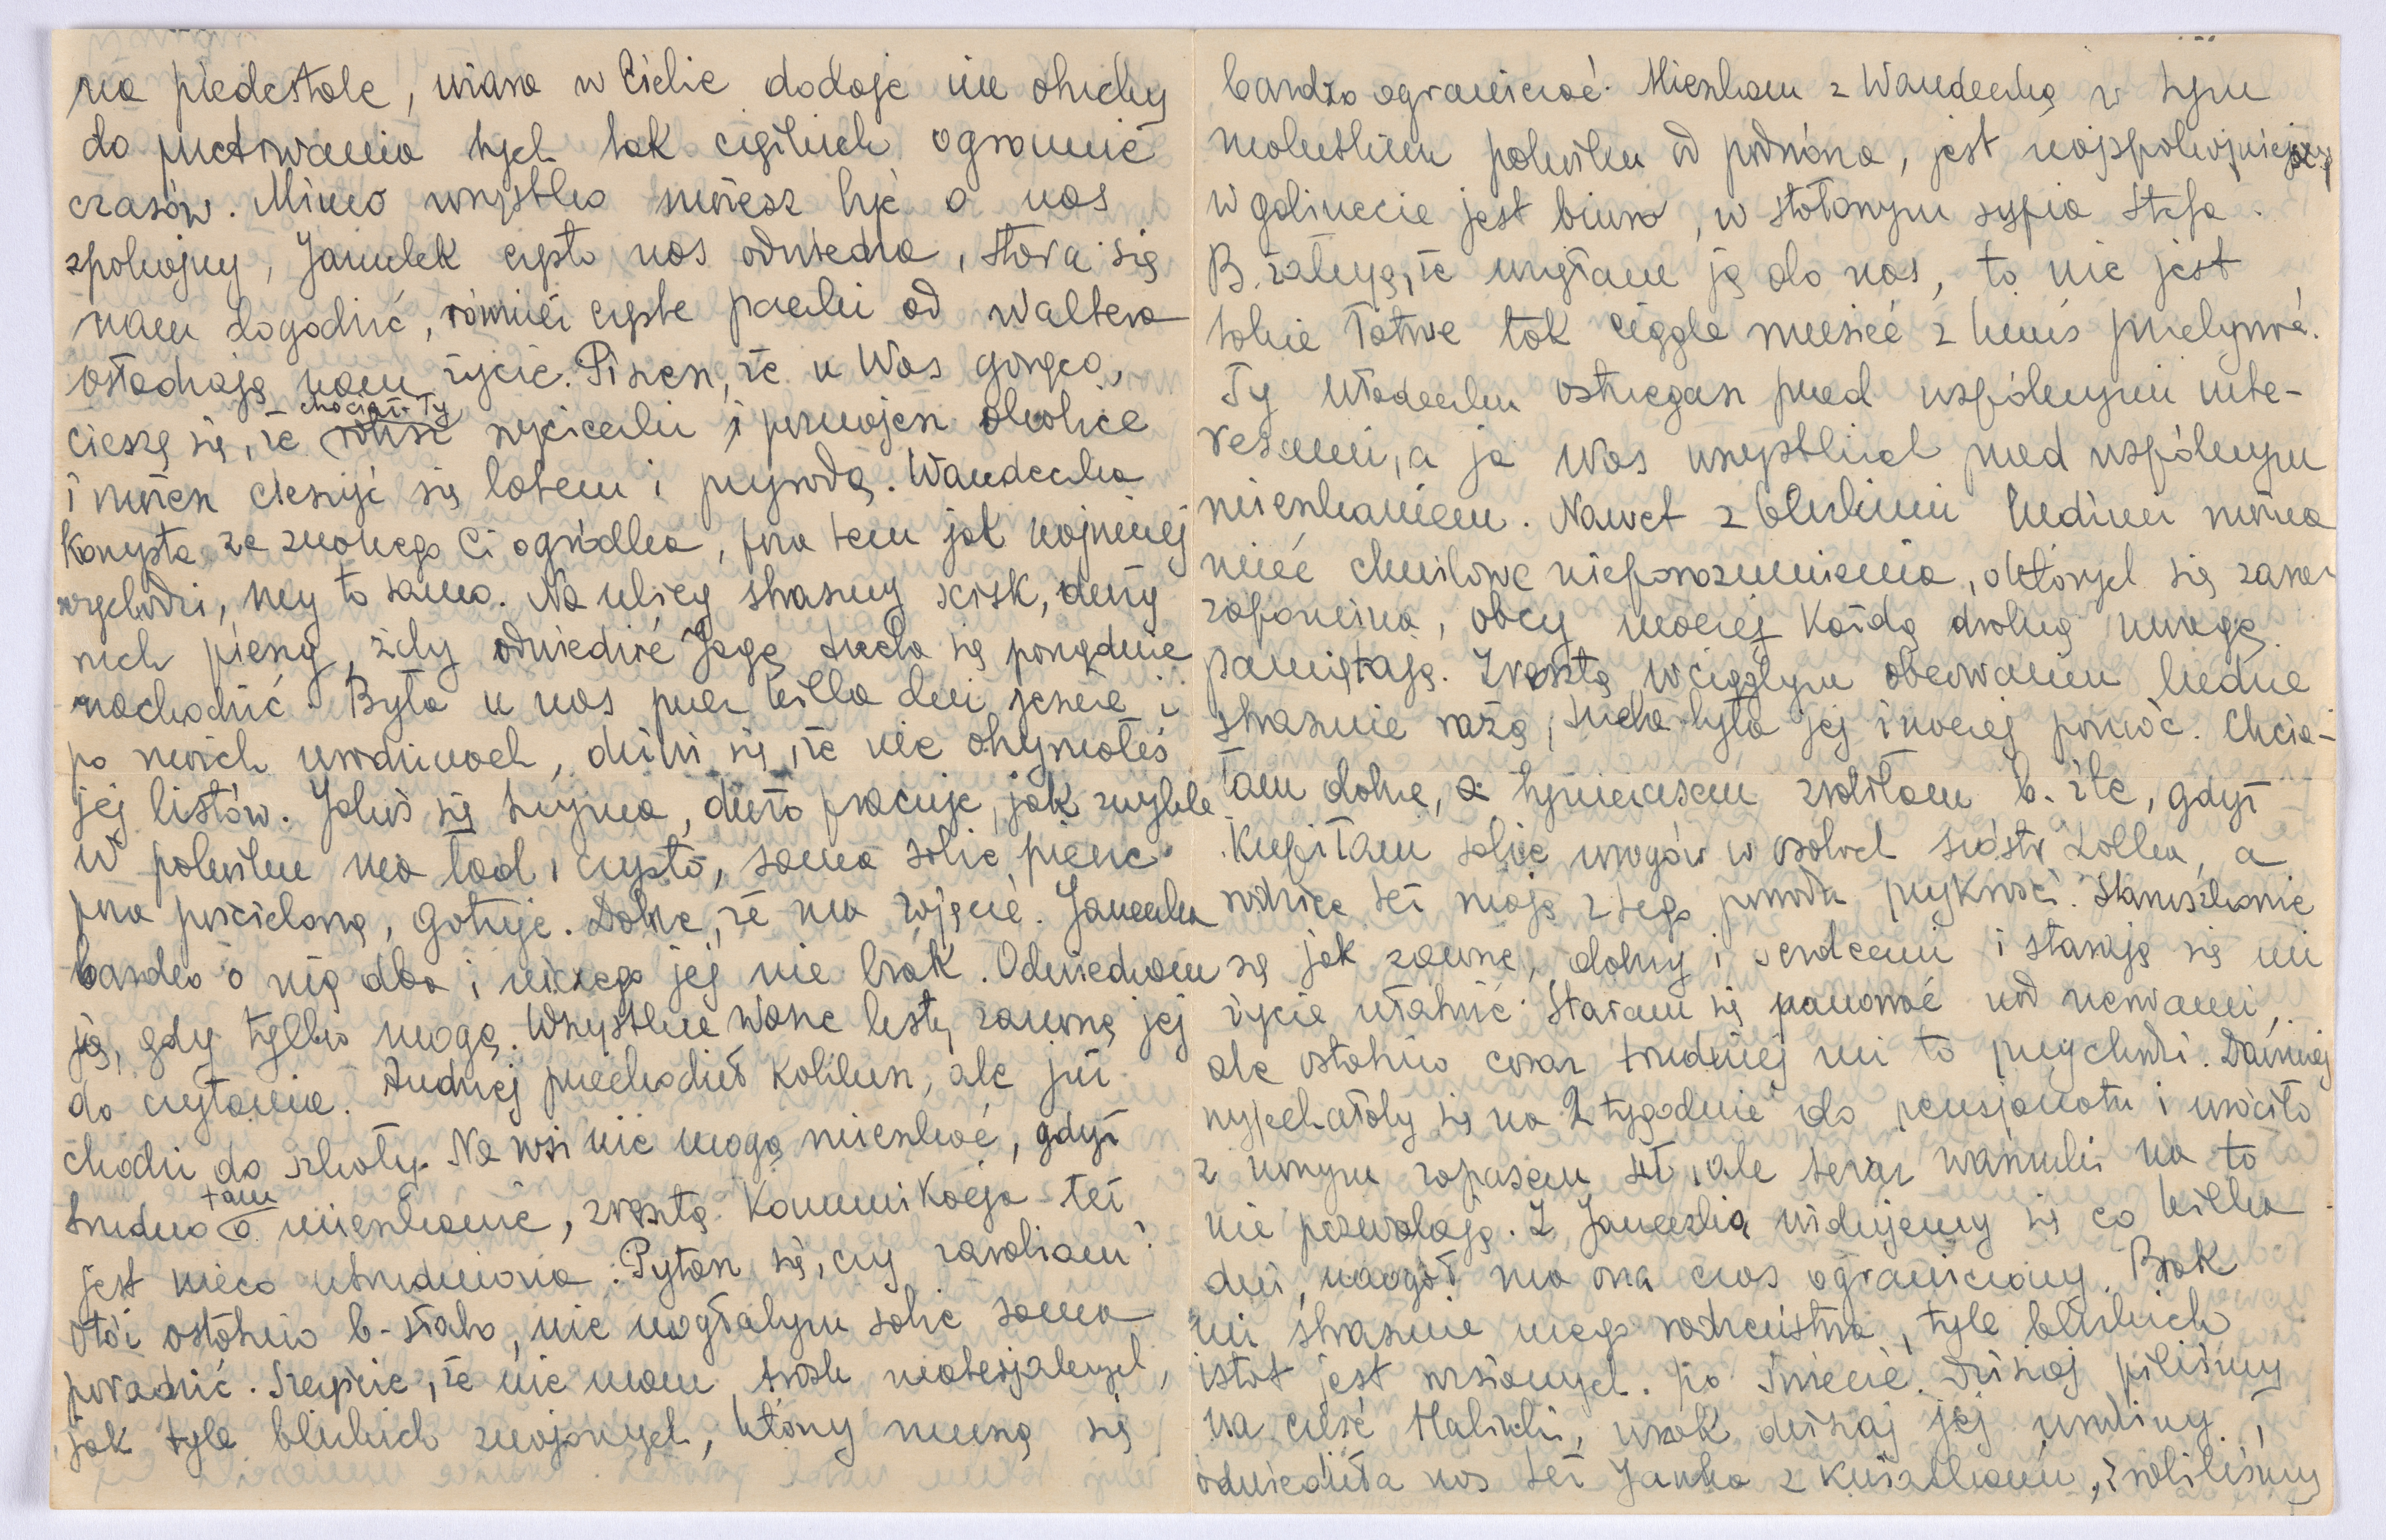 na piedestale, wiara w Ciebie dodaje mi otuchy
do przetrwania tych tak ciężkich ogromnie
czasów. Mimo wszystko możesz być o nas
spokojny, Janulek często nas odwiedza, stara się
nam dogodzić, również częste paczki od Waltera
osładzają nam życie. Piszesz, że u Was gorąco,
cieszę się, że chociaż Ty robisz wycieczki i poznajesz okolice
i możesz cieszyć się latem i przyrodą. Wandeczka
korzysta ze znanego Ci ogródka, poza tem jak najmniej
wychodzi, my to samo. Na ulicy straszny ścisk, duży
ruch pieszy, żeby odwiedzić Jagę trzeba się porządnie
nachodzić. Była u nas przez kilka dni jeszcze i
po moich urodzinach, dziwi się, że nie otrzymałeś
jej listów. Jakoś się trzyma, dużo pracuje, jak zwykle
w pokoiku ma ład i czysto, sama sobie pierze
poza pościelową, gotuje. Dobrze, że ma zajęcie. Janeczka
bardzo o nią dba i niczego jej nie brak. Odwiedzam
ją, gdy tylko mogę. Wszystkie Wasze listy zanoszę jej
do czytania. Andrzej przechodził koklusz, ale już
chodzi do szkoły. Na wsi nie mogą mieszkać, gdyż
trudno tam o mieszkanie, zresztą komunikacja też
jest nieco utrudniona. Pytasz się, czy zarabiam?
Otóż ostatnio b. słabo, nie mogłabym sobie sama
poradzić. Szczęście, że nie mam trosk materjalnych,
jak tyle bliskich znajomych, którzy muszą się
bardzo ograniczać. Mieszkam z Wandeczką w tym
malutkim pokoiku od podwórza, jest najspokojniejszy
w gabinecie jest biuro, w stołowym sypia Stefa.
B. żałuję, że wzięłam ją do nas, to nie jest
takie łatwe tak ciągle musieć z kimś przebywać.
Ty Władeczku ostrzegasz przed wspólnymi inte-
resami, a ja Was wszystkich przed wspólnym
mieszkaniem. Nawet z bliskimi ludźmi można
mieć chwilowe nieporozumienia, o których się zaraz
zapomina, obcy inaczej każdą drobną uwagę
pamiętają. Zresztą w ciągłym obcowaniu ludzie
strasznie rażą, trzeba było jej inaczej pomóc. Chcia-
łam dobrze, a tymczasem zrobiłam b. źle, gdyż
kupiłam sobie wrogów w osobach sióstr Lolka, a
rodzice też mają z tego powodu przykrość. Stanisławie
są jak zawsze, dobrzy i serdeczni i starają się mi
życie ułatwić. Staram się panować nad nerwami,
ale ostatnio coraz trudniej mi to przychodzi. Dawniej
wyjechałoby się na 2 tygodnie do pensjonatu i wróciło
z nowym zapasem sił, ale teraz warunki na to
nie pozwalają. Z Janeczką widujemy się co kilka
dni, naogół ma ona czas ograniczony. Brak
mi strasznie mego rodzeństwa, tyle bliskich
istot jest rozsianych po świecie. Dzisiaj piliśmy
na cześć Halinki, wszak dzisiaj jej urodziny.
odwiedziła nas też Janka z , zrobiliśmy